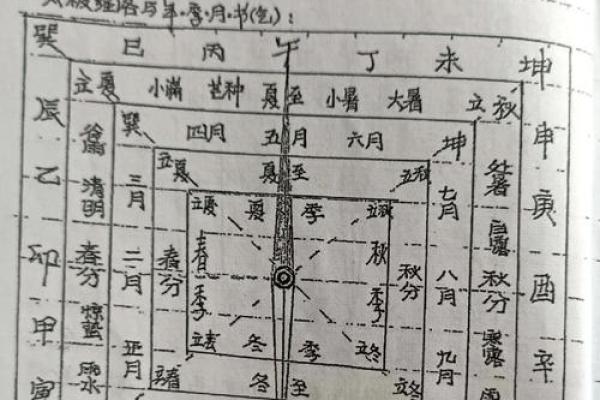 太极经络与年.季.月.书(气):
巽 巳 丙 午 丁 未 坤
立夏 小满 芒种 夏至 小暑 大暑 立秋
辰 巽 四月 五月 六月 坤 申
谷雨 立夏 夏至 立秋 处暑
乙 清明 三月 立夏 夏季 立秋 七月 白露 庚
卯 春分 二月 春分 春季 秋季 秋分 八月 秋分 酉
甲 惊蛰 立春 冬季 立冬 九月 寒露 辛
寅 雨水 正月 立春 冬至 立冬